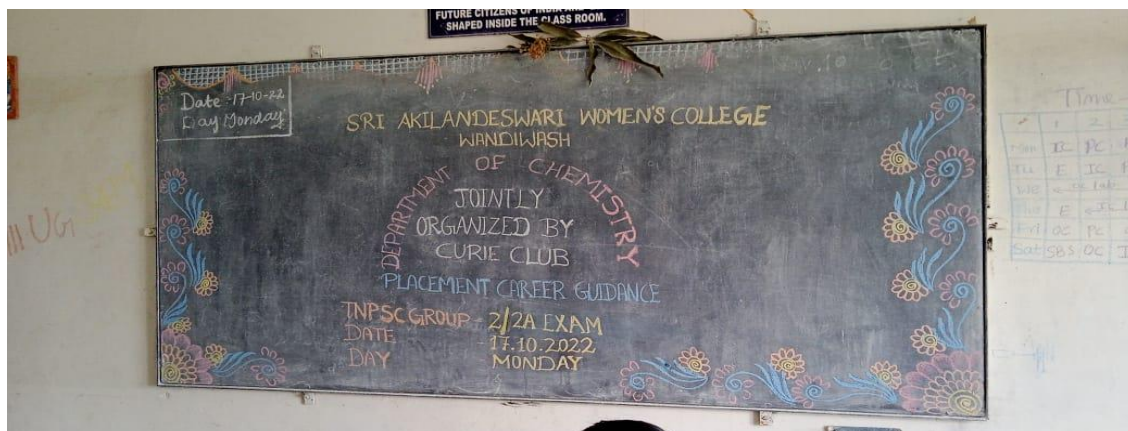 FUTURE CITIZENS OF INDIA ARE
SHAPED INSIDE THE CLASS ROOM.
Date :-17-10-22
Day Monday
SRI AKILANDESWARI WOMEN'S COLLEGE
WANDIWASH
DEPARTMENT OF CHEMISTRY
JOINTLY
ORGANIZED BY
CURIE CLUB
PLACEMENT CAREER GUIDANCE
TNPSC GROUP - 2/2A EXAM
DATE - 17.10.2022
DAY MONDAY
III UG
Time
1 2
Mon IC PC
E IC
E
Fri OC PC
Sat SBS OC I